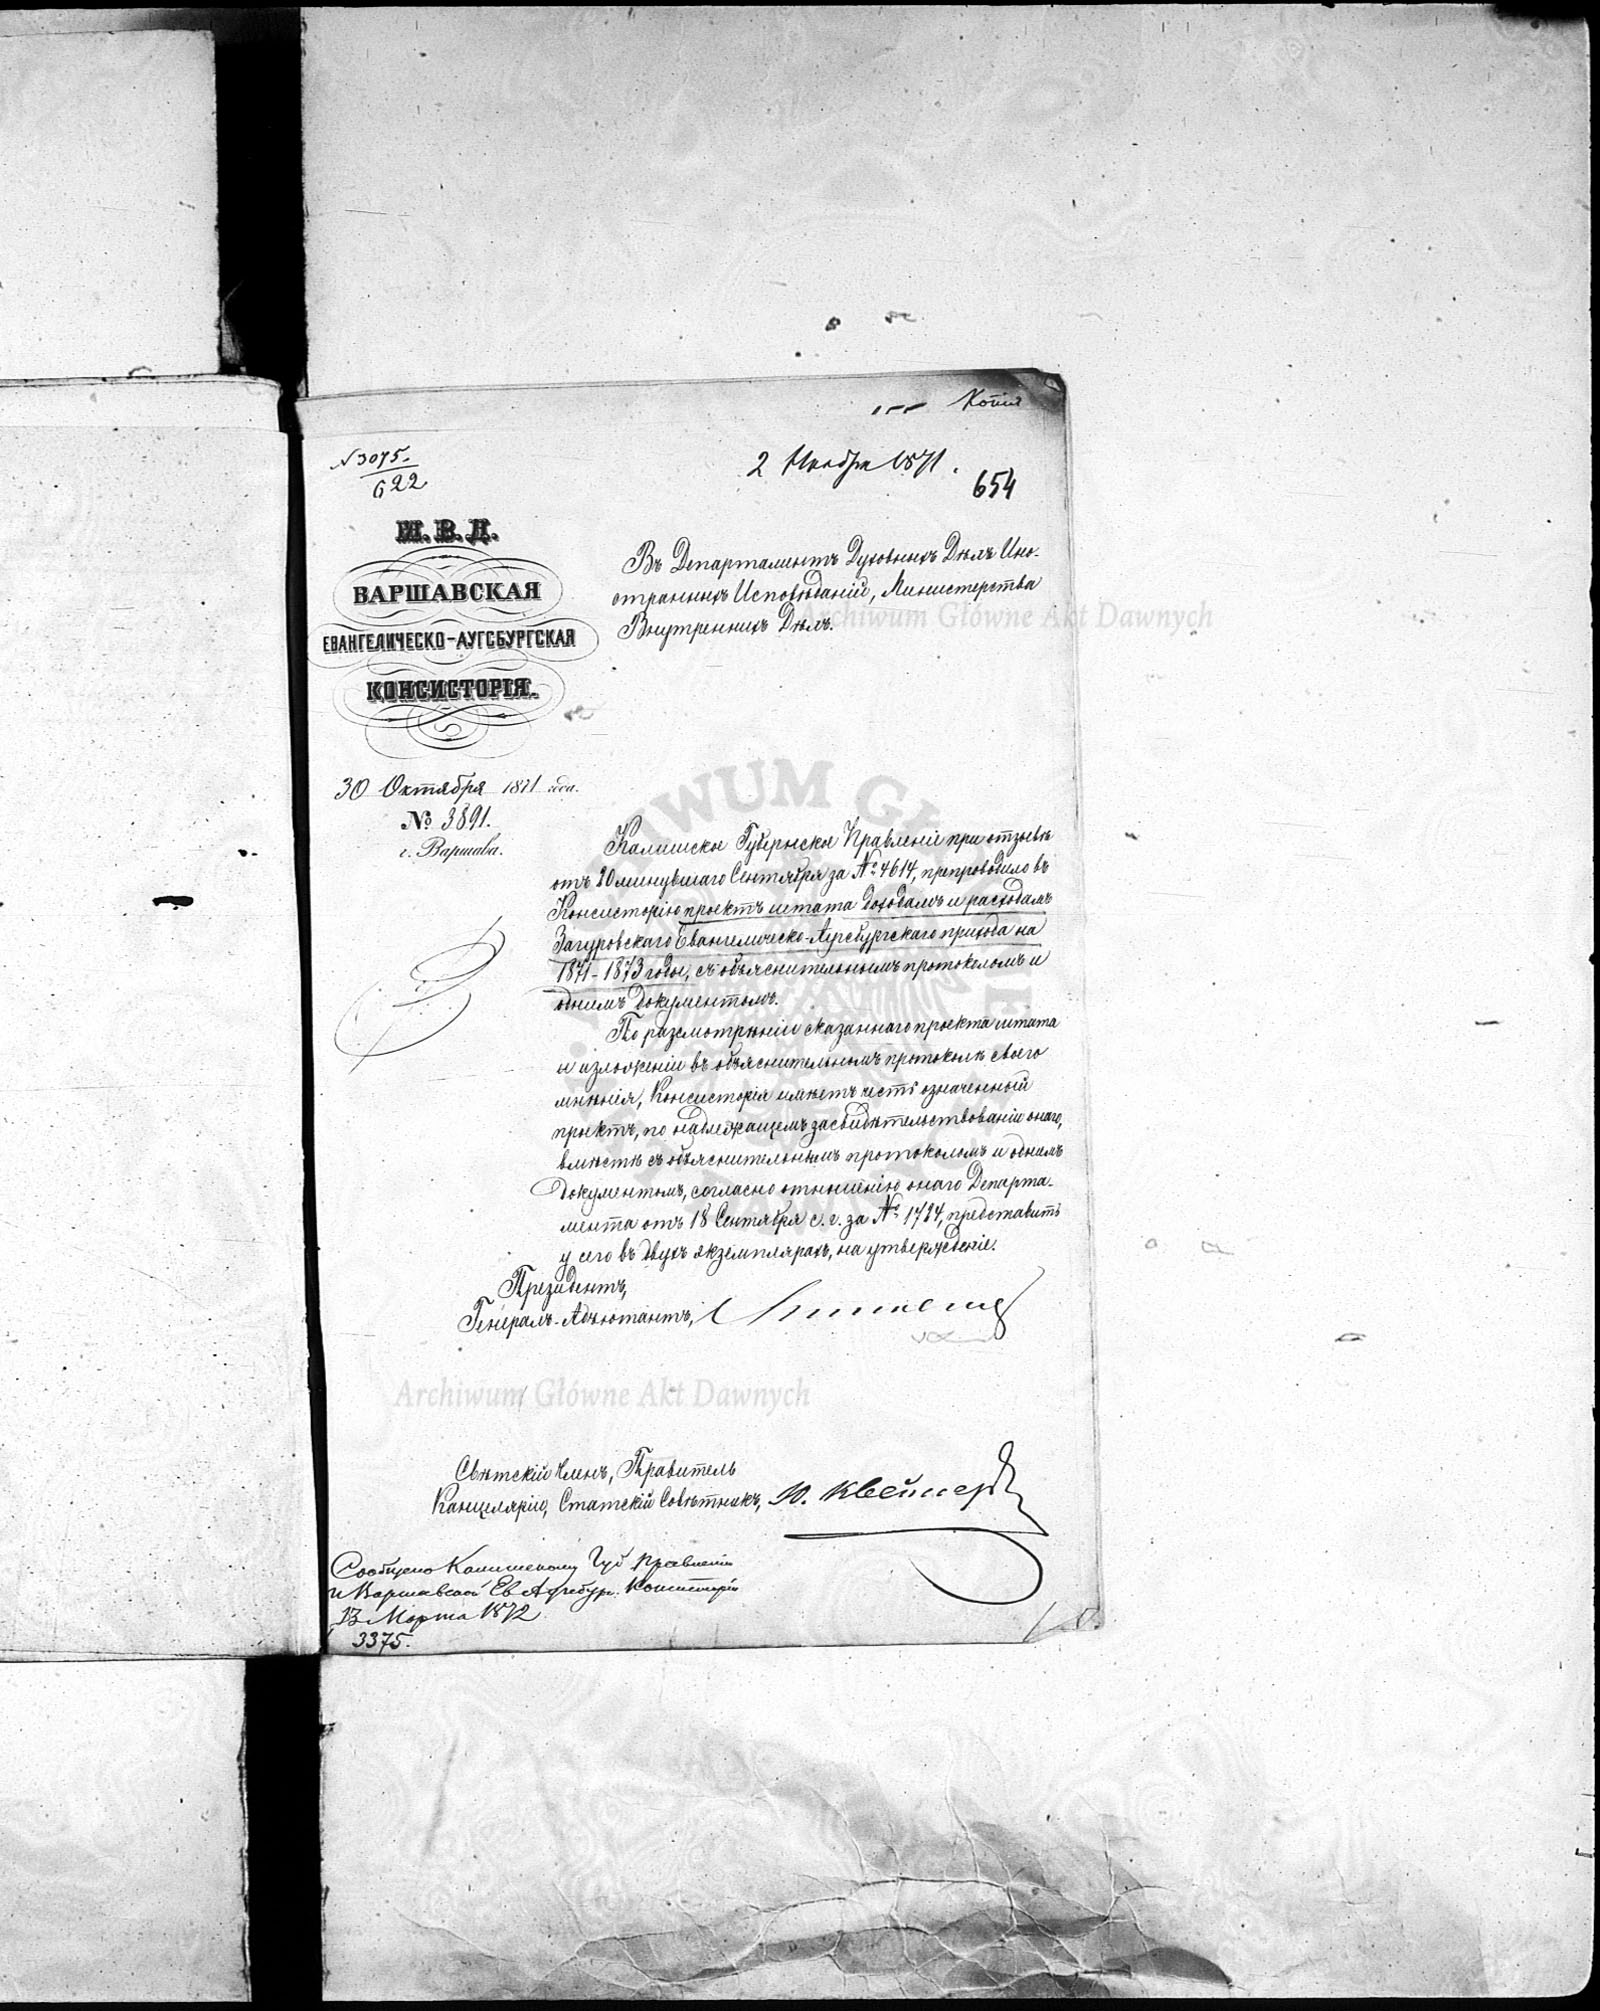 Копія
№ 3075.
622
2 Ноября 1871.
654
М. В. Д.
ВАРШАВСКАЯ
ЕВАНГЕЛИЧЕСКО-АУГСБУРГСКАЯ
КОНСИСТОРІЯ.
30 Октября 1871 года.
№ 3891.
г. Варшава.
Въ Департаментъ Духовныхъ Дѣлъ Ино-
странныхъ Исповѣданій, Министерства
Внутреннихъ Дѣлъ.
Калишское Губернское Правленіе при отзывѣ
отъ 20 минувшаго Сентября за № 4614, препроводило въ
Консисторію проектъ штата доходамъ и расходамъ
Загуровскаго Евангелическо-Аугсбургскаго прихода на
1871-1873 годы, съ объяснительнымъ протоколомъ и
однимъ документомъ.
По разсмотрѣніи сказаннаго проекта штата
и изложеніи въ объяснительномъ протоколѣ своего
мнѣнія, Консисторія имѣетъ честь означенный
проектъ, по надлежащемъ засвидѣтельствованіи онаго,
вмѣстѣ съ объяснительнымъ протоколомъ и однимъ
документомъ, согласно отношенію онаго Департа-
мента отъ 18 Сентября с. г. за № 1724, представить
у сего въ двухъ экземплярахъ, на утвержденіе.
Президентъ,
Генералъ-Адъютантъ,
Свѣтскій Членъ, Правитель
Канцеляріи, Статскій Совѣтникъ,
Сообщено Калишскому Губ Правленію
и Варшавской Ев Аугсбург. Консисторіи
13 Марта 1872
3375.
Archiwum Główne Akt Dawnych
Archiwum Główne Akt Dawnych